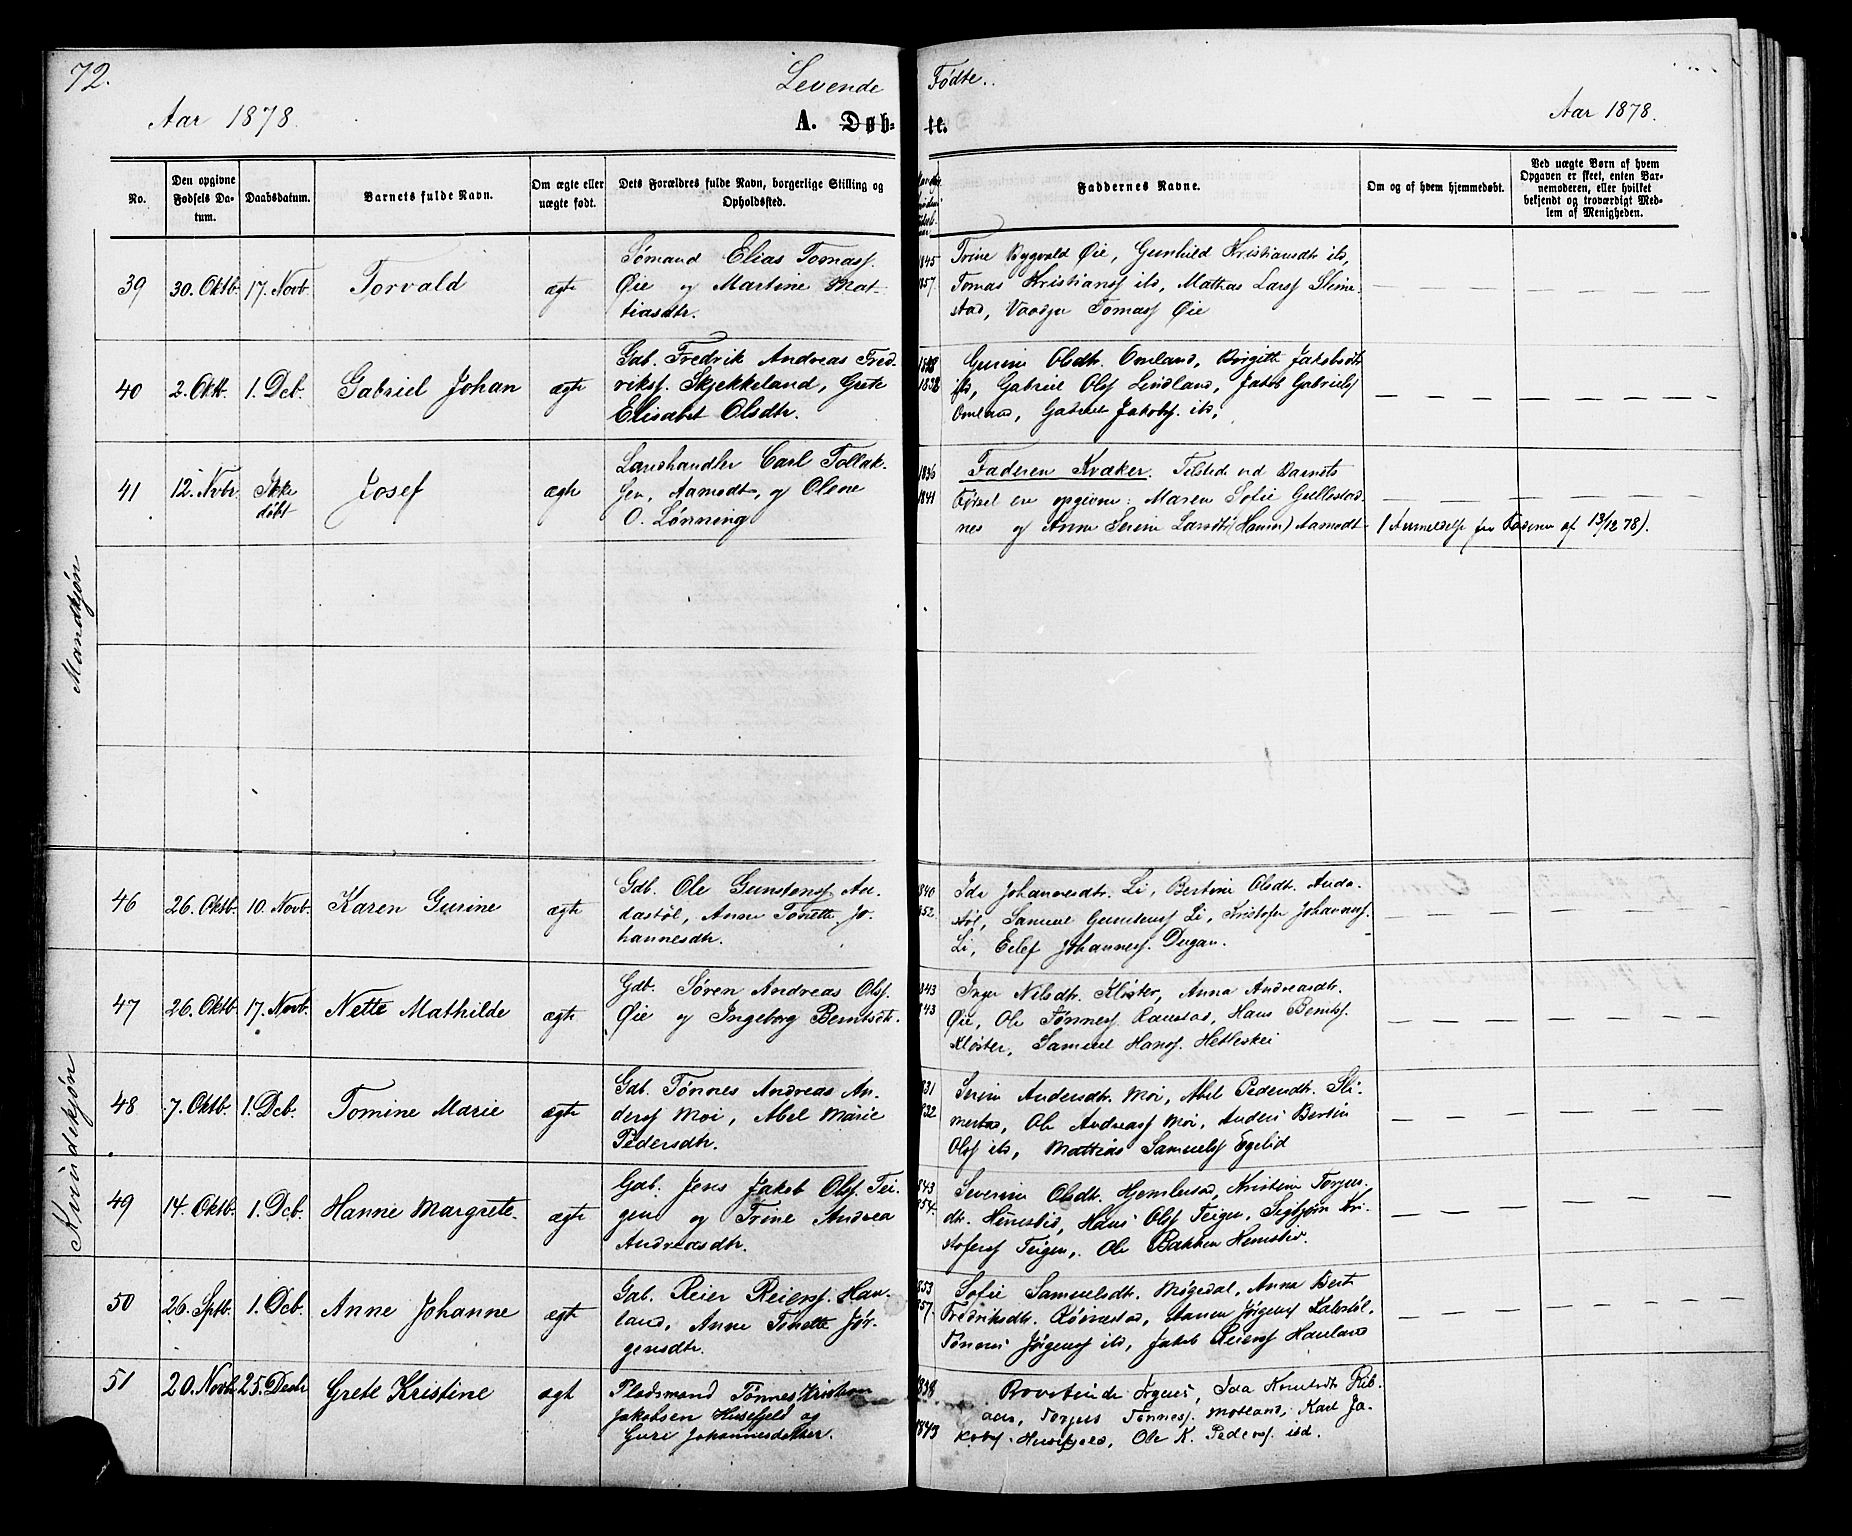 72.
Levende Fødte.
Aar 1878.
A. Døb- te.
Aar 1878.
No.
Den opgivne Fødsels Da-tum.
Daabsdatum.
Barnets fulde Navn.
Om ægte eller uægte født.
Dets Forældres fulde Navn, borgerlige Stilling og Opholdssted.
Faddernes Navne.
Om og af hvem hjemmedøbt.
Ved uægte Børn af hvem Opgaven er skeet, enten Bar-nemoderen, eller hvilket bekjendt og troværdigt Med-lem af Menigheden.
Mandkjøn
39 30. Oktb. 17. Novb. Torvald ægte
Sømand Elias Tomass.
Øie og Martine Mat-
tiasdtr.
1845 Trine Bygvold Øie, Gunhild Kristiansdtr. ib,
1857 Tomas Kristianss ib, Mathias Larss Slime-
stad, Tomass Øie
40 2. Okt. 1. Dcb. Gabriel Johan ægte
Gdb. Fredrik Andreas Fred-
riksf. Skjekkeland, Grete
Elisabet Olsdtr.
Gurine Olsdtr. Omland, Birgitte Jakobsdtr.
1838 ib, Gabriel Olss Lindland, Jakob Gabrielss
Omland, Gabriel Jakobs. ib,
41 12. Nvbr. Ikke døbt Josef ægte
Lanshandler Carl Tollak-
sen, Aamodt, og Olene
O. Lønning
1836 Faderen Kvæker. Tilstede ved Barnets
1841 Fødsel ere opgivne: Maren Sofie Gullestad-
nes og Anne Serine Larsdtr (Hansen) Aamodt
(Anmeldelse fra Faderen af 13/12 78).
Kvindekjøn
46 26. Oktb. 10. Novb. Karen Gurine ægte
Gdb. Ole Gunstenss Au-
dastøl, Anne Tonette Jo-
hannesdtr.
1840 Ida Johannesdtr. Li, Bertine Olsdtr. Auda-
1852. støl, Samuel Gunstenss Li, Kristofer Johanness.
Li, Eilef Johanness. Dugan.
47 26. Oktb 17. Novb. Nette Mathilde ægte
Gdb. Søren Andreas Olsf.
Øie og Ingeborg Berntsdtr.
1843 Inger Nilsdtr. Kløster, Anna Andreasdtr.
1843 Øie, Ole Tønness. Raustad, Hans Berntss.
Kløster, Samuel Hanss. Hetleskei
48 7. Oktb. 1. Dcb. Tomine Marie ægte
Gdb. Tønnes Andreas An-
derss Moi, Abel Marie
Pedersdtr.
1831 Serine Andersdtr. Moi, Abel Pedersdtr. Sli-
1832 mestad, Ole Andreass Moi, Anders Bertin
Olss ib, Mattias Samuelss Egelid
49 14. Oktb. 1. Dcb. Hanne Margrete. ægte
Gdb. Jens Jakob Olsf. Tei-
gen og Trine Andrea
Andreasdtr.
1843 Severine Olsdtr. Hemlestad, Kristine Torjus-
1854. dtr. Hemstid, Hans Olss Teigen, Sigbjørn Kri-
stoferss Teigen, Ole Bakken Hemstid.
50 26. Sptb. 1. Dcb. Anne Johanne ægte
Gdb. Reier Reierss. Hau-
land, Anne Tonette Jør-
gensdtr.
1853 Sofie Samuelsdtr. Møgedal, Anna Bert
1857. Fredriksdtr. Rørnestad, Jørgenss Kalestøl,
Tønnes Jørgenss ib, Jakob Reierss Hauland
51 20. Novb. 25. Decbr Grete Kristine ægt
Pladsmand Tønnes Kristian
Jakobsen Husefjeld og
Guri Johannesdatter.
1838 Ida Knutsdtr. Rib-
aas, Torjus Tønness. Motland, Karl Ja-
1843 kobss. Husefjeld, Ole K. Peders. ibd.